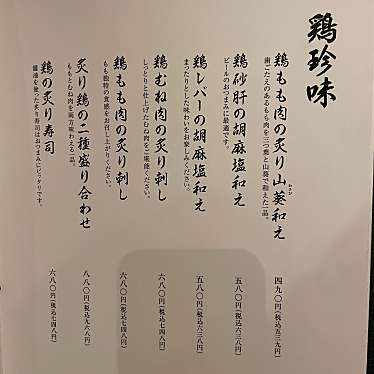 鶏珍味
鶏もも肉の炙り山葵和え
わさび
歯ごたえのあるもも肉を三つ葉と山葵で和えた一品。
四九〇円(税込五三九円)
鶏砂肝の胡麻塩和え
ビールのおつまみに最適です。
五八〇円(税込六三八円)
鶏レバーの胡麻塩和え
まったりとした味わいをお楽しみください。
五八〇円(税込六三八円)
鶏むね肉の炙り刺し
しっとりと仕上げたむね肉をご堪能ください。
六八〇円(税込七四八円)
鶏もも肉の炙り刺し
もも独特の食感をお召し上がりください。
六八〇円(税込七四八円)
炙り鶏の二種盛り合わせ
ももとむね肉を両方味わえる一品。
八八〇円(税込九六八円)
鶏の炙り寿司
醤油を使った炙り寿司はおつまみにピッタリです。
六八〇円(税込七四八円)